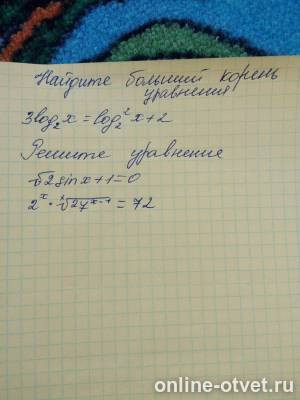 Найдите больший корень
уравнения
3log₂x = log₂²x + 2
Решите уравнение
√2 sin x + 1 = 0
2ˣ · ³√27ˣ⁻¹ = 72
online-otvet.ru